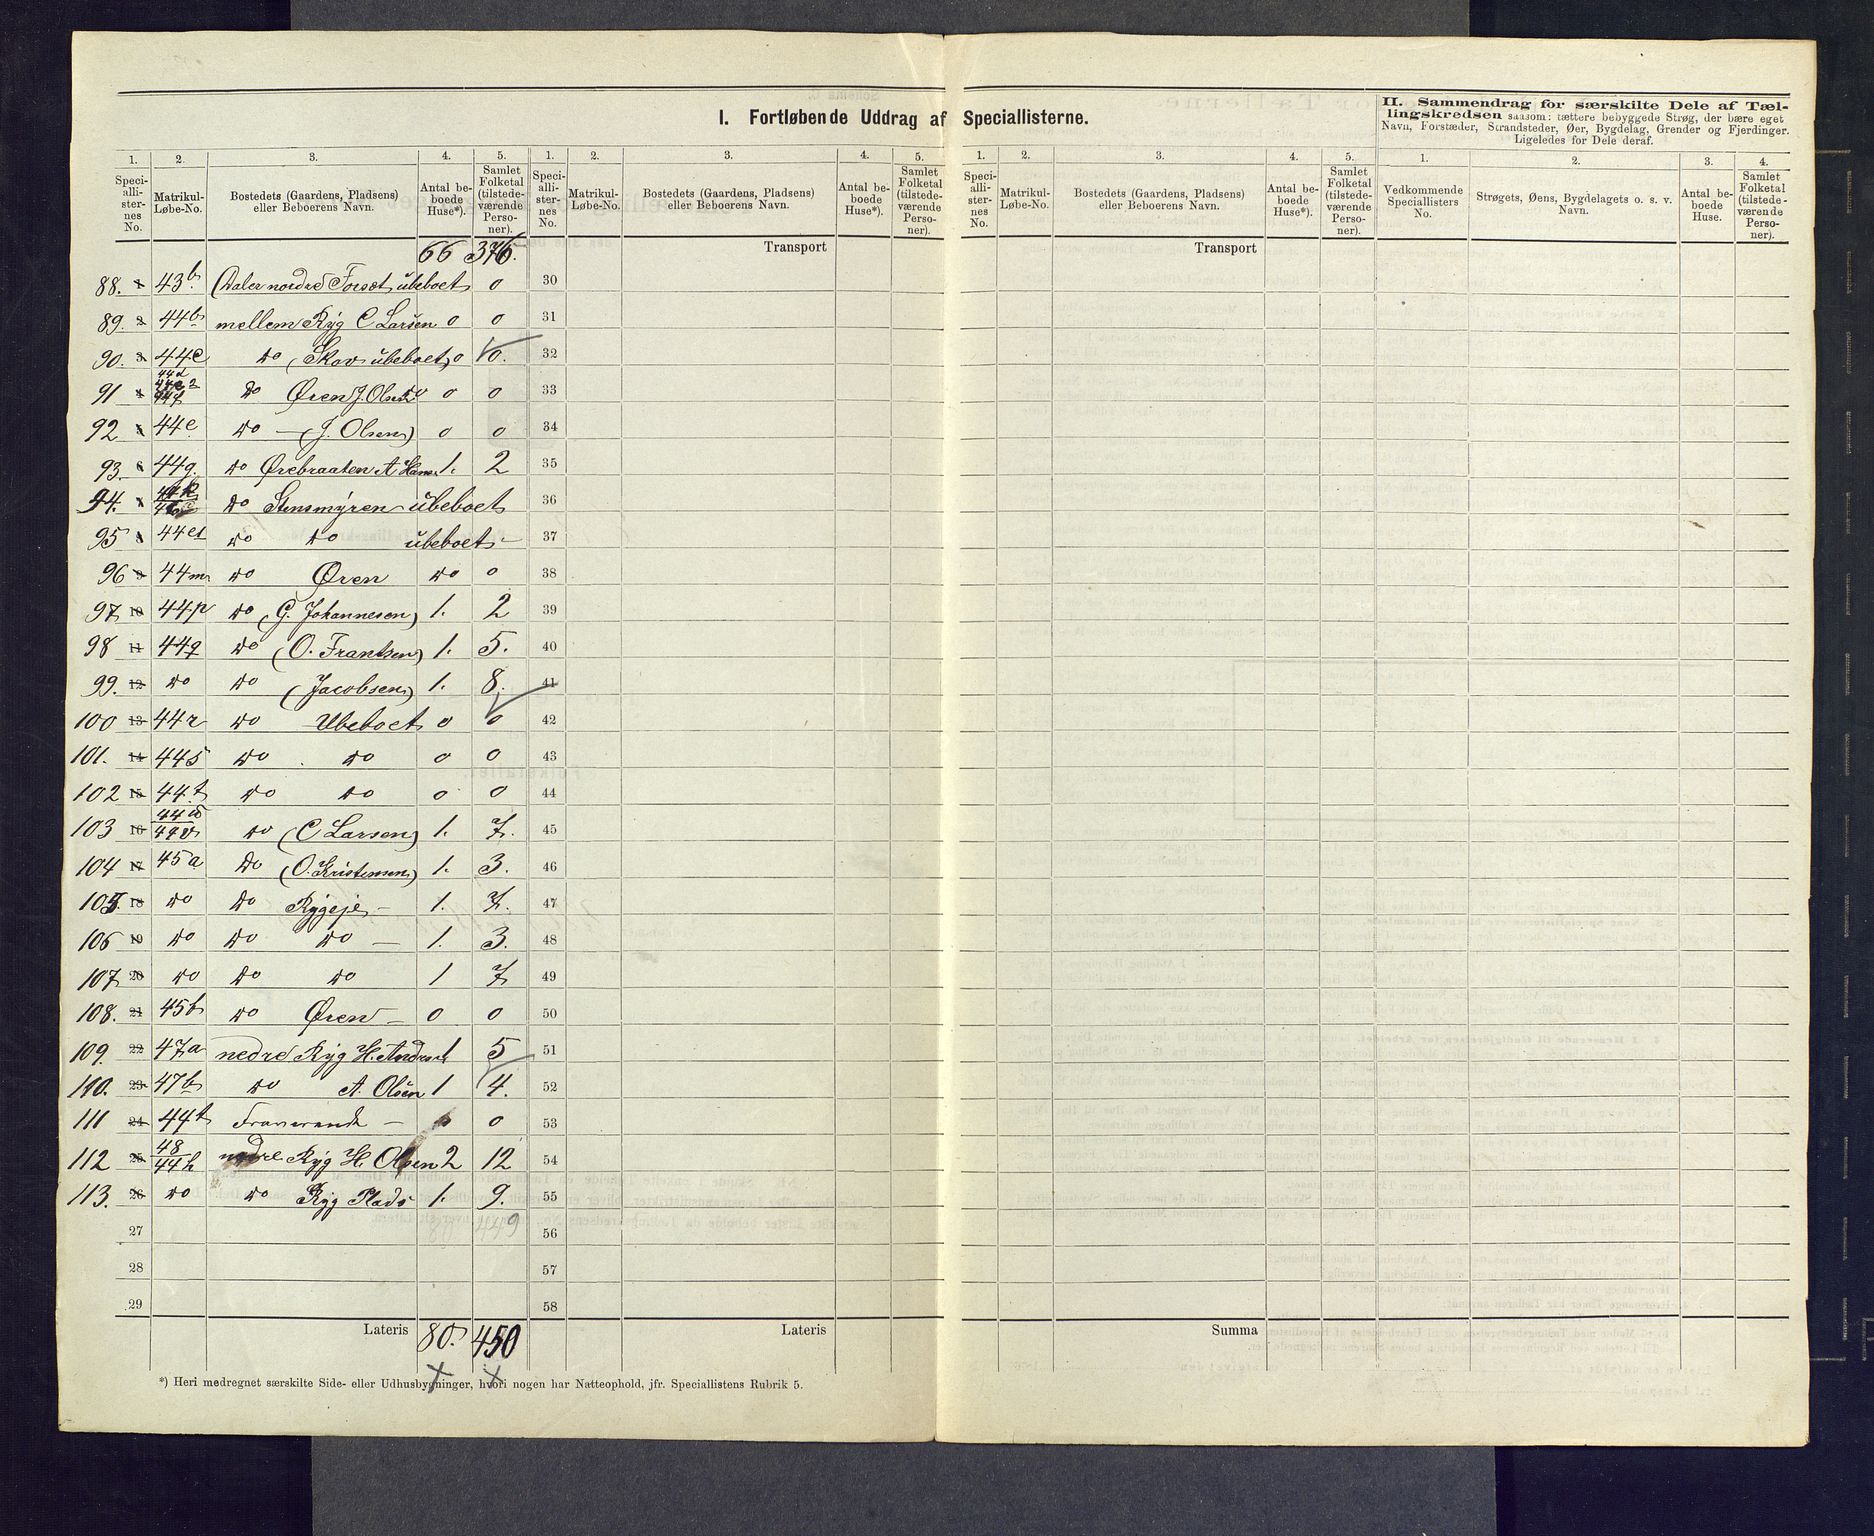 I. Fortløbende Uddrag af Speciallisterne.
II. Sammendrag for særskilte Dele af Tæl-
lingskredsen saasom: tættere bebyggede Strøg, der bære eget
Navn, Forstæder, Strandsteder, Øer, Bygdelag, Grender og Fjerdinger.
Ligeledes for Dele deraf.
1. 2. 3. 4. 5. 1. 2. 3. 4. 5. 1. 2. 3. 4. 5. 1. 2. 3. 4.
Speci-alli-sternes No. Matrikul-Løbe-No. Bostedets (Gaardens, Pladsens) eller Beboerens Navn. Antal be-boede Huse*). Samlet Folketal (tilstede-værende Perso-ner).
Speci-alli-ster-nes No. Matrikul-Løbe-No. Bostedets (Gaardens, Pladsens) eller Beboerens Navn. Antal be-boede Huse*). Samlet Folketal (tilstede-værende Perso-ner).
Speci-alli-ster-nes No. Matrikul-Løbe-No. Bostedets (Gaardens, Pladsens) eller Beboerens Navn. Antal be-boede Huse*). Samlet Folketal (tilstede-værende Perso-ner).
Vedkommende Speciallisters No. Strøgets, Øens, Bygdelagets o. s. v. Navn. Antal be-boede Huse. Samlet Folketal (tilstede-værende Perso-ner).
66 376. Transport Transport
88. 1 43b. nordre Forset ubeboet 0 30
89. 2 44b mellem Ryg C Larsen 0 0 31
90. 3 44c do (Skov ubeboet) 0 0. 32
91 4 do Øren J. Olsen 0 0 33
92 5 44e do — (J. Olsen) 0 0 34
93. 6 44g. do Ørebraaten A Hans 1. 2 35
94. 7 do Stensmyren ubeboet 36
95 8 do do ubeboet - 37
96 9 44m do Øren do 0 38
97 10 44p do (G. Johannesen) 1. 2 39
98 11 44q do (O. Frantsen) 1. 5. 40
99. 12 do do (Jacobsen) 1. 8. 41
100 13 44r do Ubeboet 0 0 42
101. 14 44s do do 0 0 43
102 15 44t do do 0 0 44
103 16 44v do (C Larsen) 1. 7. 45
104 17 45a do (O. Kristensen) 1. 3. 46
105. 18 do do Rygeje — 1. 7. 47
106 19 do do do — 1. 3. 48
107 20 do do do 1 7 49
108. 21 45b do Øren — 0 0 50
109. 22 47a nedre Ryg H. Anders 1 5 51
110. 23 47b do A. Olsen 1 4. 52
111 24 44t Fraværende — 0 0 53
112 25 48/44h nedre Ryg H. Olsen 2 12 54
113. 26 do do Ryg Plads 1. 9. 55
27 80 449 56
28 57
29 58
Lateris 80. 450 Lateris Summa
*) Heri medregnet særskilte Side- eller Udhusbygninger, hvori nogen har Natteophold, jfr. Speciallistens Rubrik 5.